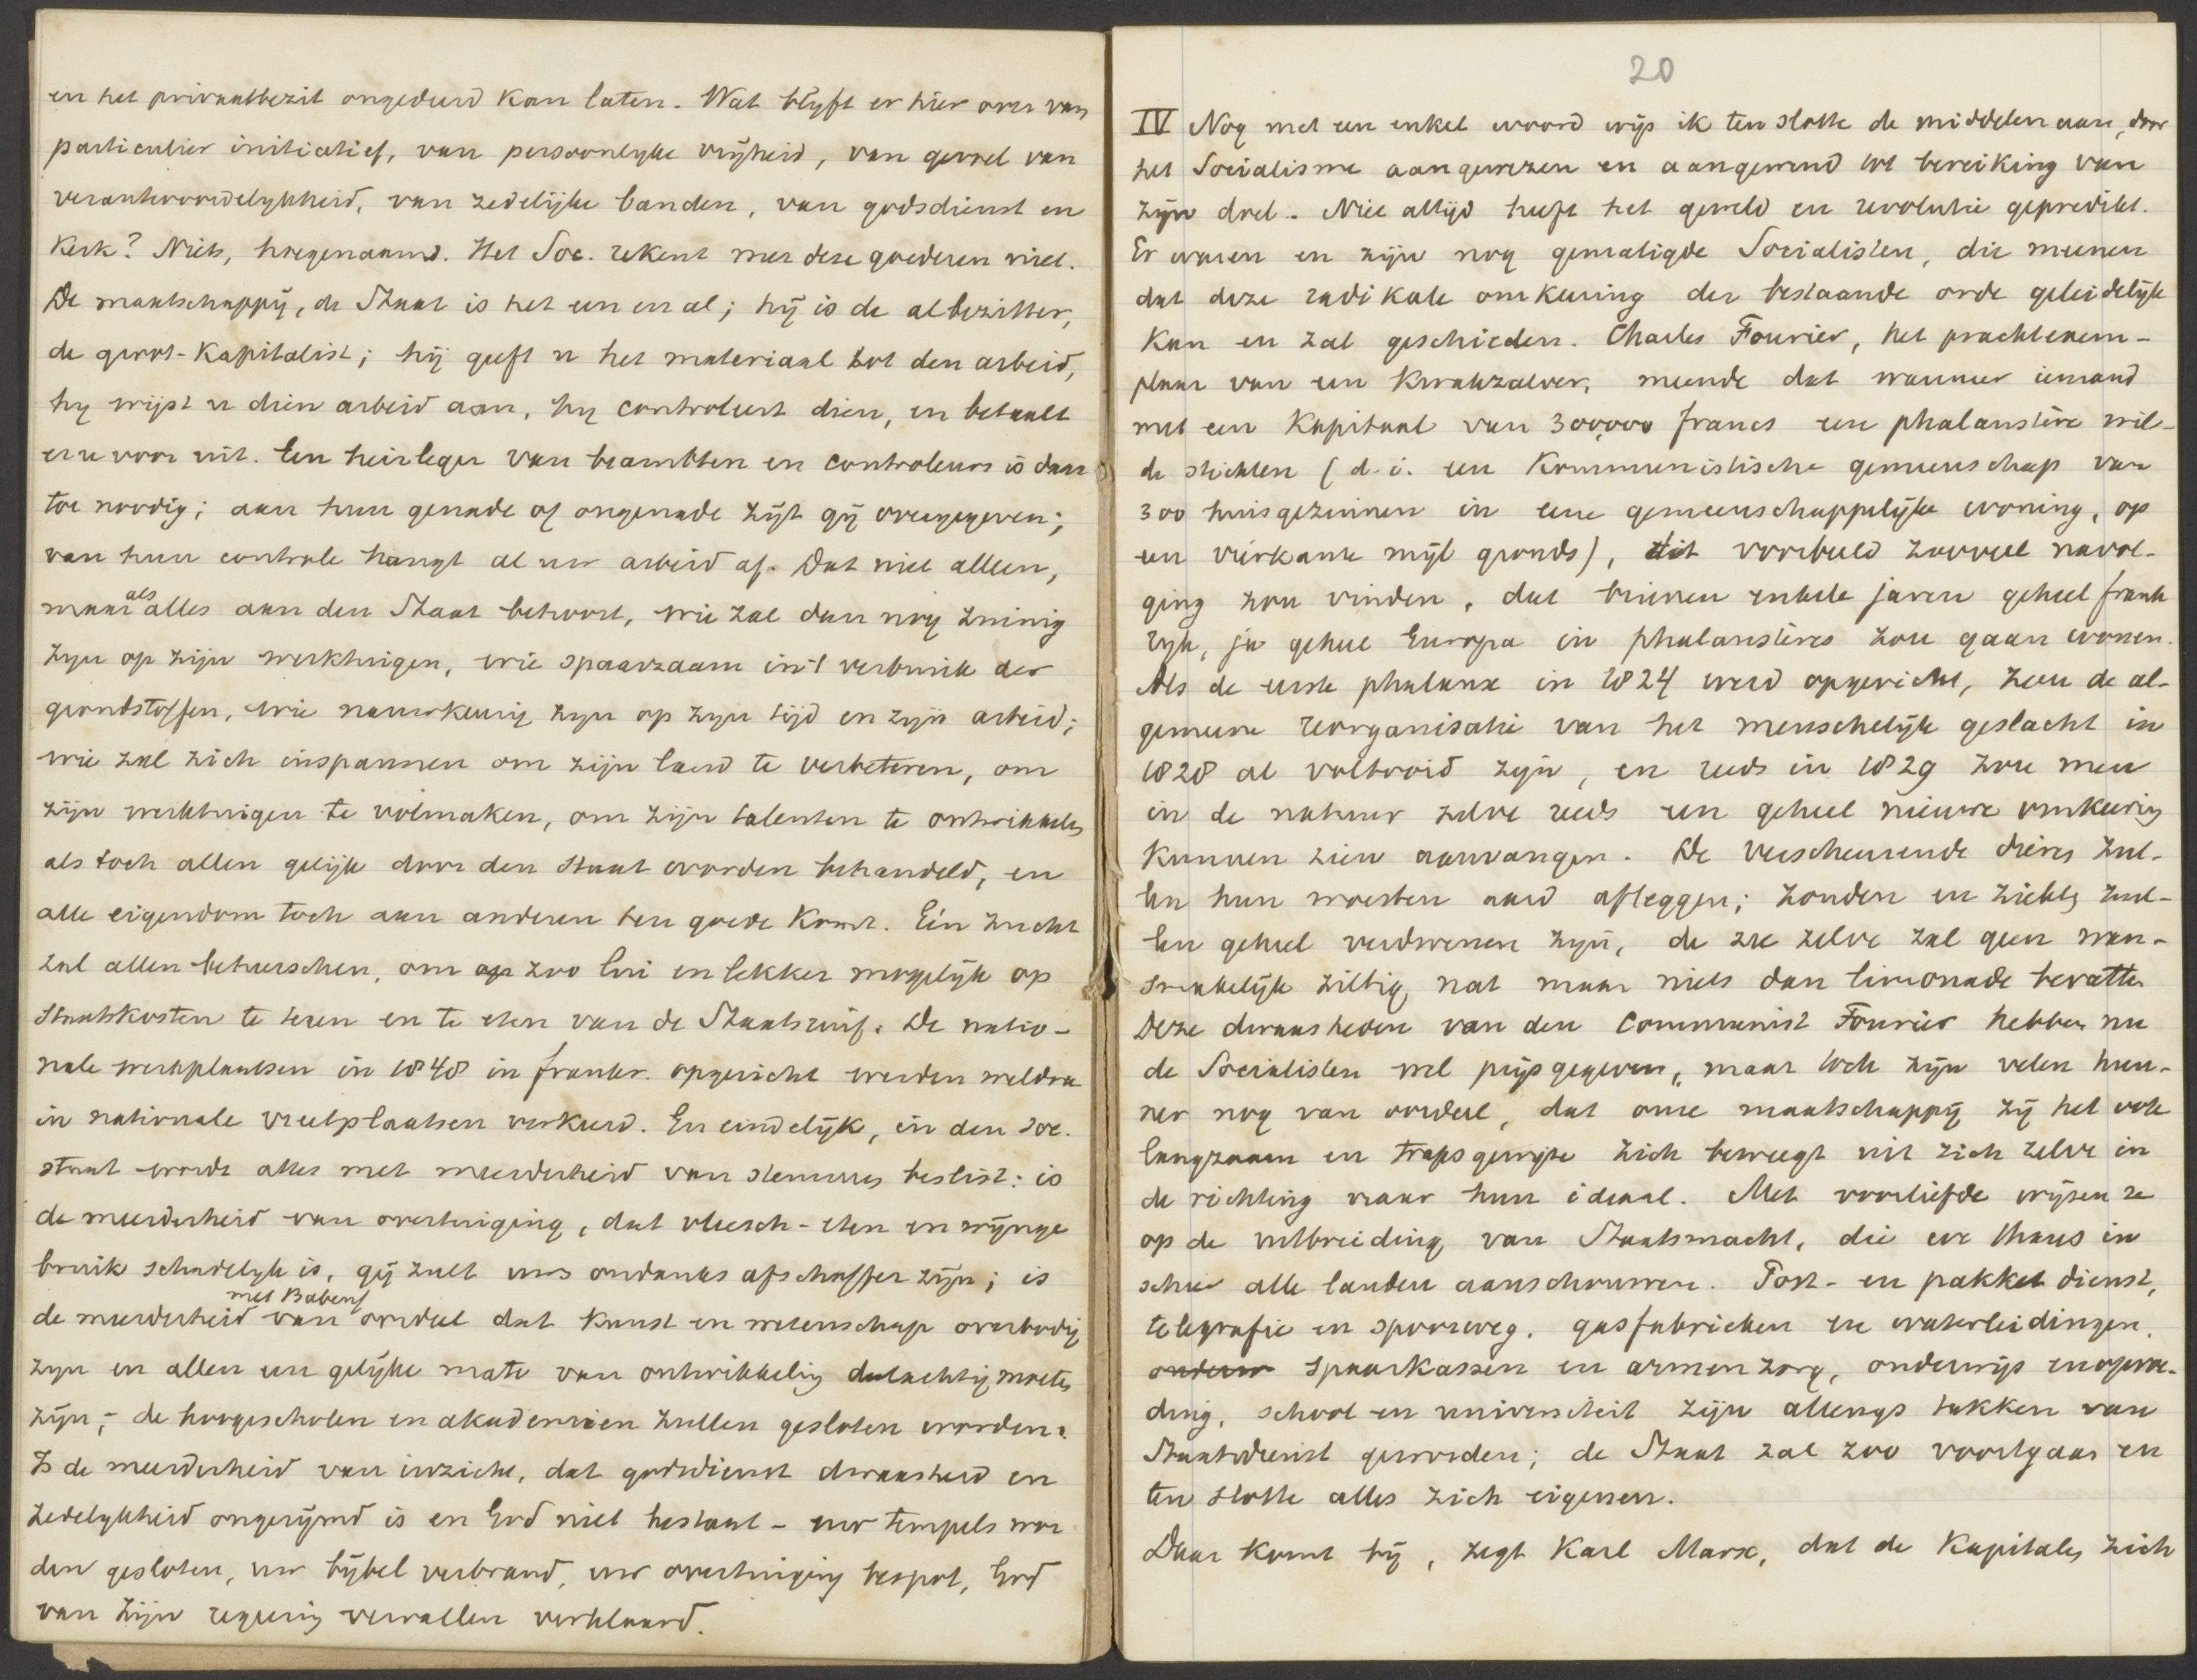 en het privaatbezit ongedeerd kan laten. Wat blijft er hier over van
particulier initiatief, van persoonlijke vrijheid, van gevoel van
verantwoordelijkheid, van zedelijke banden, van godsdienst en
Kerk? Niets, hoegenaamd. Het Soc. rekent met deze goederen niet.
De maatschappij, de Staat is het een en al; hij is de albezitter,
de groot-Kapitalist; hij geeft u het materiaal tot den arbeid,
hij wijst u dien arbeid aan, hij controleert dien, en betaalt
er u voor uit. Een heirleger van beambten en controleurs is daar
toe noodig; aan hun genade of ongenade zijt gij overgegeven;
van hun controle hangt al uw arbeid af. Dat niet alleen,
maar als alles aan den Staat behoort, wie zal dan nog zuinig
zijn op zijn werktuigen, wie spaarzaam in 't verbruik der
grondstoffen, wie nauwkeurig zijn op zijn tijd en zijn arbeid;
wie zal zich inspannen om zijn land te verbeteren, om
zijn werktuigen te volmaken, om zijn talenten te ontwikkelen
als toch allen gelijk door den Staat worden behandeld, en
alle eigendom toch aan anderen ten goede komt. Eén zucht
zal allen beheerschen, om op zoo lui en lekker mogelijk op
Staatskosten te teren en te eten van de Staatsruif. De natio-
nale werkplaatsen in 1848 in frankr. opgericht werden weldra
in nationale vreetplaatsen verkeerd. En eindelijk, in den soc.
staat wordt alles met meerderheid van stemmen beslist: is
de meerderheid van overtuiging, dat vleesch-eten en wijnge
bruik schadelijk is, gij zult uws ondanks afschaffer zijn; is
de meerderheid met Babeuf van oordeel dat Kunst en wetenschap overbodig
zijn en allen een gelijke mate van ontwikkeling deelachtig moeten
zijn; - de hoogescholen en akademien zullen gesloten worden.
Is de meerderheid van inzicht, dat godsdienst dwaasheid en
zedelijkheid ongerijmd is en God niet bestaat - uw tempels wor
den gesloten, uw bijbel verbrand, uw overtuiging bespot, God
van zijn regering vervallen verklaard.
20
IV Nog met een enkel woord wijs ik ten slotte de middelen aan, door
het Socialisme aangewezen en aangewend tot bereiking van
zijn doel. Niet altijd heeft het geweld en revolutie gepredikt.
Er waren en zijn nog gematigde Socialisten, die meenen
dat deze radikale omkeering der bestaande orde geleidelijk
kan en zal geschieden. Charles Fourier, het prachtexem-
plaar van een Kwakzalver, meende dat wanneer iemand
met een Kapitaal van 300,000 francs een phalanstère wil-
de stichten (d.i. een Kommunistische gemeenschap van
300 huisgezinnen in eene gemeenschappelijke woning, op
een vierkante mijl gronds), dit voorbeeld zooveel navol-
ging zou vinden, dat binnen enkele jaren geheel frank
rijk, ja geheel Europa in phalanstères zou gaan wonen.
Als de eerste phalanx in 1824 werd opgericht, zou de al-
gemeene reorganisatie van het menschelijk geslacht in
1828 al voltooid zijn, en reeds in 1829 zou men
in de natuur zelve reeds een geheel nieuwe omkeering
kunnen zien aanvangen. De verscheurende dieren zul-
len hun woesten aard afleggen; zonden en ziekten zul-
len geheel verdwenen zijn, de zee zelve zal geen wan-
smakelijk ziltig nat maar niets dan limonade bevatten
Deze dwaasheden van den Communist Fourier hebben nu
de Socialisten wel prijsgegeven, maar toch zijn velen hun-
ner nog van oordeel, dat onze maatschappij zij het ook
langzaam en trapsgewijze zich beweegt uit zich zelve in
de richting naar hun ideaal. Met voorliefde wijzen ze
op de uitbreiding van Staatsmacht, die we thans in
schier alle landen aanschouwen. Post- en pakket dienst,
telegrafie en spoorweg, gasfabrieken en waterleidingen,
spaarkassen en armenzorg, onderwijs en opvoe-
ding, school en universiteit zijn allengs takken van
Staatsdienst geworden; de Staat zal zoo voortgaan en
ten slotte alles zich eigenen.
Daar komt bij, zegt Karl Marx, dat de Kapitalen zich